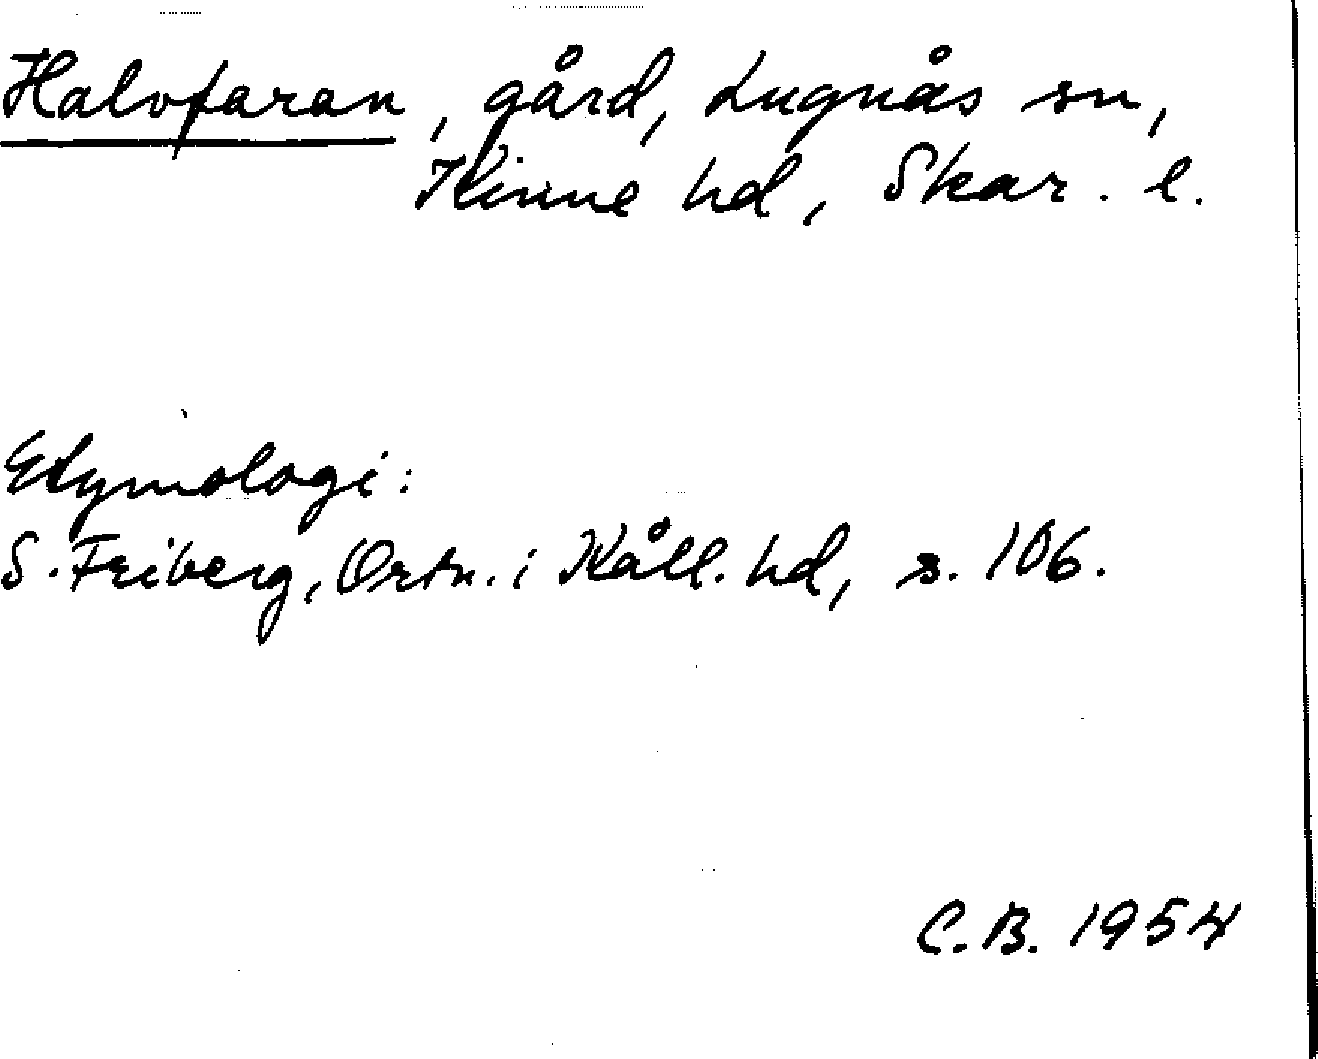 Halvfaran, gård, Lugnås sn,
Kinne hd, Skar. l.
Etymologi:
S. Friberg, Ortn. i Kåll. hd, s. 106.
C.B. 1954